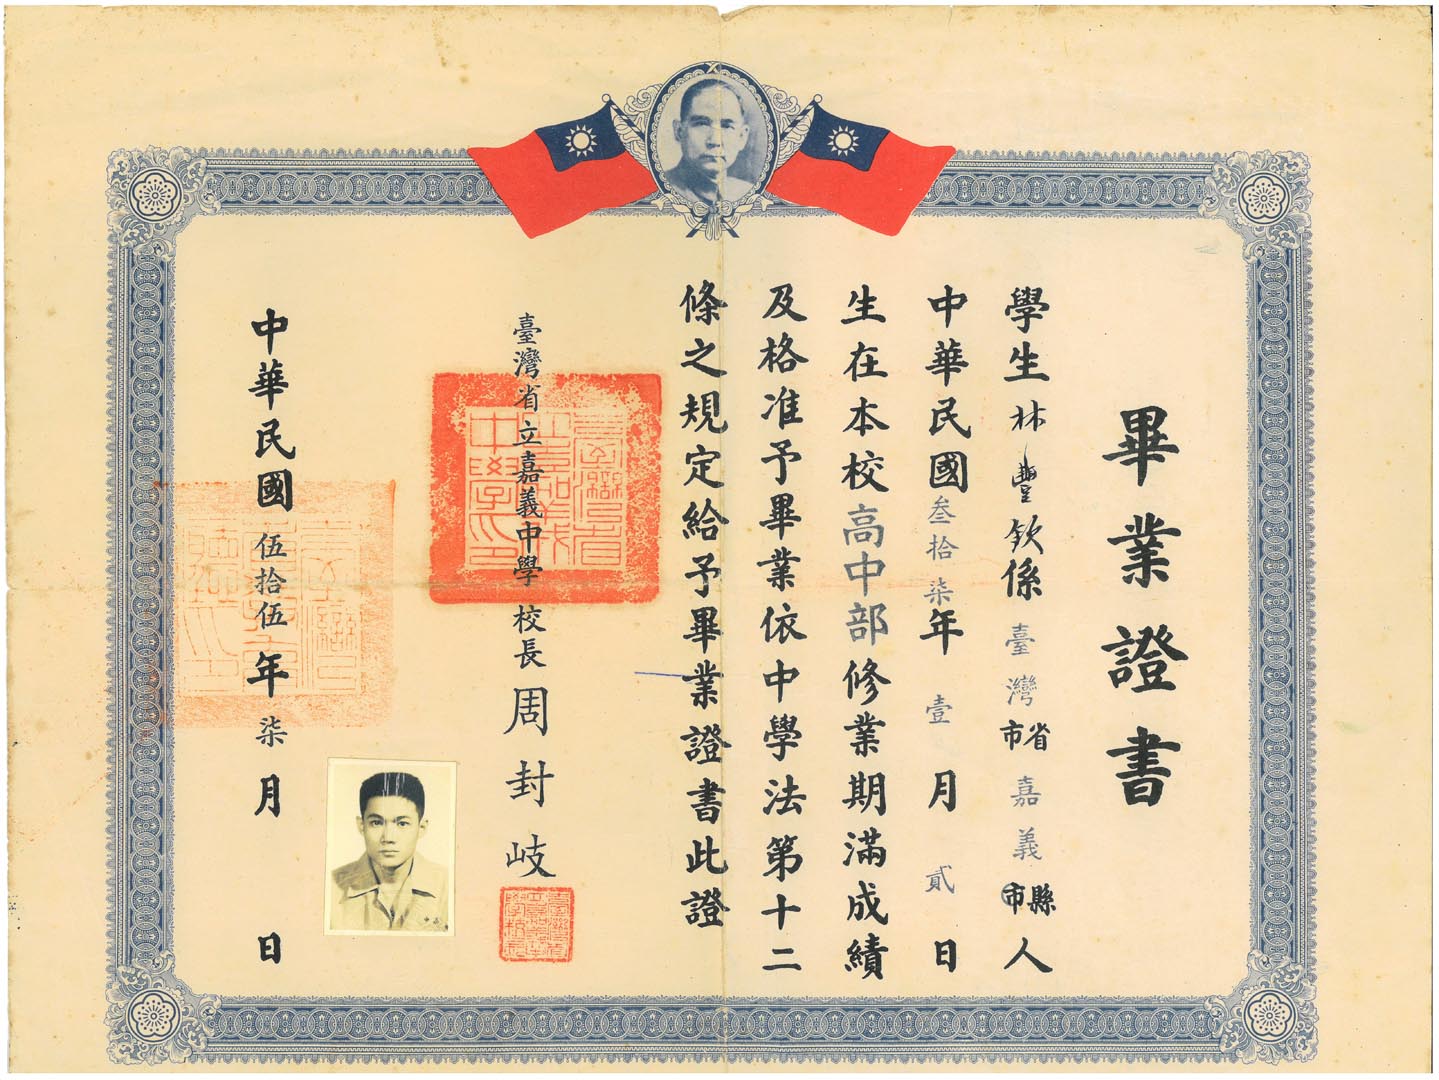 畢業證書
學生林豐欽係臺灣省市嘉義縣市人
中華民國叁拾柒年壹月貳日
生在本校高中部修業期滿成績
及格准予畢業依中學法第十二
條之規定給予畢業證書此證
臺灣省立嘉義中學校長周封岐
中華民國伍拾伍年柒月日